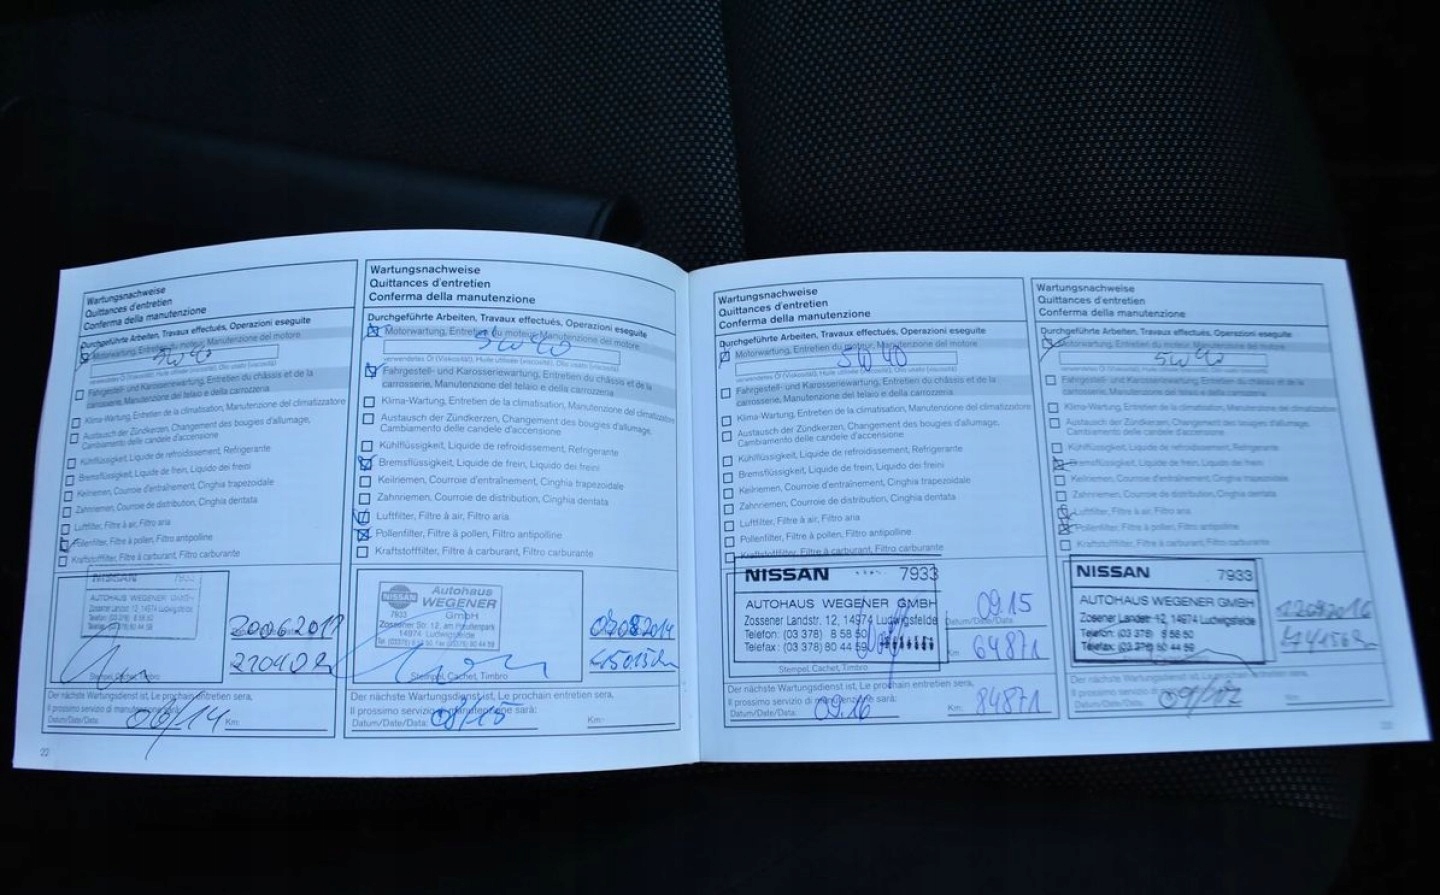 Wartungsnachweise
Quittances d'entretien
Conferma della manutenzione
Durchgeführte Arbeiten, Travaux effectués, Operazioni eseguite
Motorwartung, Entretien du moteur, Manutenzione del motore
5W40
verwendetes Öl (Viskosität), Huile utilisée (viscosité), Olio usato (viscosità)
Fahrgestell- und Karosseriewartung, Entretien du châssis et de la
carrosserie, Manutenzione del telaio e della carrozzeria
Klima-Wartung, Entretien de la climatisation, Manutenzione del climatizzatore
Austausch der Zündkerzen, Changement des bougies d'allumage,
Cambiamento delle candele d'accensione
Kühlflüssigkeit, Liquide de refroidissement, Refrigerante
Bremsflüssigkeit, Liquide de frein, Liquido dei freini
Keilriemen, Courroie d'entraînement, Cinghia trapezoidale
Zahnriemen, Courroie de distribution, Cinghia dentata
Luftfilter, Filtre à air, Filtro aria
Pollenfilter, Filtre à pollen, Filtro antipolline
Kraftstofffilter, Filtre à carburant, Filtro carburante
NISSAN 7933
AUTOHAUS WEGENER GMBH
Zossener Landstr. 12, 14974 Ludwigsfelde
Stempel, Cachet, Timbro
Der nächste Wartungsdienst ist, Le prochain entretien sera,
Il prossimo servizio di manutenzione sarà:
Datum/Date/Data: 06/14 Km:
22
Wartungsnachweise
Quittances d'entretien
Conferma della manutenzione
Durchgeführte Arbeiten, Travaux effectués, Operazioni eseguite
Motorwartung, Entretien du moteur, Manutenzione del motore
5W40
verwendetes Öl (Viskosität), Huile utilisée (viscosité), Olio usato (viscosità)
Fahrgestell- und Karosseriewartung, Entretien du châssis et de la
carrosserie, Manutenzione del telaio e della carrozzeria
Klima-Wartung, Entretien de la climatisation, Manutenzione del climatizzatore
Austausch der Zündkerzen, Changement des bougies d'allumage,
Cambiamento delle candele d'accensione
Kühlflüssigkeit, Liquide de refroidissement, Refrigerante
Bremsflüssigkeit, Liquide de frein, Liquido dei freini
Keilriemen, Courroie d'entraînement, Cinghia trapezoidale
Zahnriemen, Courroie de distribution, Cinghia dentata
Luftfilter, Filtre à air, Filtro aria
Pollenfilter, Filtre à pollen, Filtro antipolline
Kraftstofffilter, Filtre à carburant, Filtro carburante
NISSAN Autohaus
WEGENER
7933 GmbH
Zossener Str. 12, am Preußenpark
14974 Ludwigsfelde
07.08.2014
Stempel, Cachet, Timbro
Der nächste Wartungsdienst ist, Le prochain entretien sera,
Il prossimo servizio di manutenzione sarà:
Datum/Date/Data: 08/15 Km:
Wartungsnachweise
Quittances d'entretien
Conferma della manutenzione
Durchgeführte Arbeiten, Travaux effectués, Operazioni eseguite
Motorwartung, Entretien du moteur, Manutenzione del motore
5W40
verwendetes Öl (Viskosität), Huile utilisée (viscosité), Olio usato (viscosità)
Fahrgestell- und Karosseriewartung, Entretien du châssis et de la
carrosserie, Manutenzione del telaio e della carrozzeria
Klima-Wartung, Entretien de la climatisation, Manutenzione del climatizzatore
Austausch der Zündkerzen, Changement des bougies d'allumage,
Cambiamento delle candele d'accensione
Kühlflüssigkeit, Liquide de refroidissement, Refrigerante
Bremsflüssigkeit, Liquide de frein, Liquido dei freini
Keilriemen, Courroie d'entraînement, Cinghia trapezoidale
Zahnriemen, Courroie de distribution, Cinghia dentata
Luftfilter, Filtre à air, Filtro aria
Pollenfilter, Filtre à pollen, Filtro antipolline
Kraftstofffilter, Filtre à carburant, Filtro carburante
NISSAN 7933
AUTOHAUS WEGENER GMBH
Zossener Landstr. 12, 14974 Ludwigsfelde
Telefon: (03 378) 8 58 50
Telefax: (03 378) 80 44 59
09.15
Datum/Date/Data
Km 64871
Stempel, Cachet, Timbro
Der nächste Wartungsdienst ist, Le prochain entretien sera,
Il prossimo servizio di manutenzione sarà:
Datum/Date/Data: 09.16 Km: 84871
Wartungsnachweise
Quittances d'entretien
Conferma della manutenzione
Durchgeführte Arbeiten, Travaux effectués, Operazioni eseguite
Motorwartung, Entretien du moteur, Manutenzione del motore
5W40
verwendetes Öl (Viskosität), Huile utilisée (viscosité), Olio usato (viscosità)
Fahrgestell- und Karosseriewartung, Entretien du châssis et de la
carrosserie, Manutenzione del telaio e della carrozzeria
Klima-Wartung, Entretien de la climatisation, Manutenzione del climatizzatore
Austausch der Zündkerzen, Changement des bougies d'allumage,
Cambiamento delle candele d'accensione
Kühlflüssigkeit, Liquide de refroidissement, Refrigerante
Bremsflüssigkeit, Liquide de frein, Liquido dei freini
Keilriemen, Courroie d'entraînement, Cinghia trapezoidale
Zahnriemen, Courroie de distribution, Cinghia dentata
Luftfilter, Filtre à air, Filtro aria
Pollenfilter, Filtre à pollen, Filtro antipolline
Kraftstofffilter, Filtre à carburant, Filtro carburante
NISSAN 7933
AUTOHAUS WEGENER GMBH
Zossener Landstr. 12, 14974 Ludwigsfelde
Telefon: (03 378) 8 58 50
Telefax: (03 378) 80 44 59
Der nächste Wartungsdienst ist, Le prochain entretien sera,
Il prossimo servizio di
Datum/Date/Data: Km: